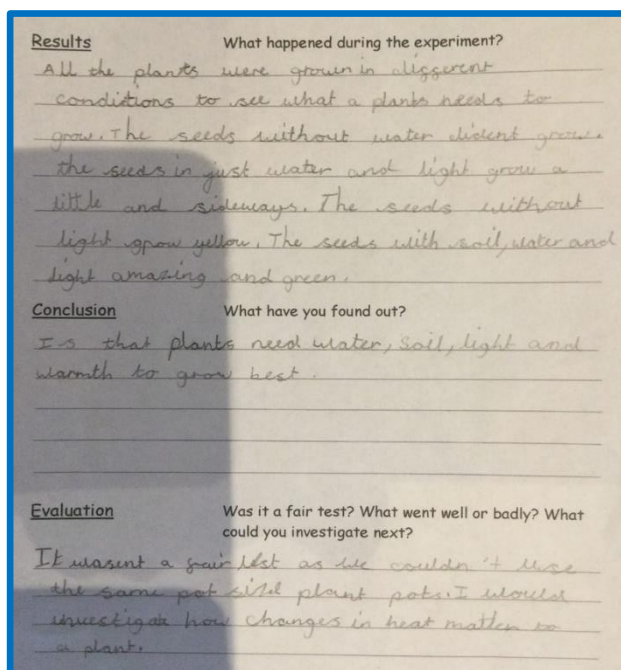 Results What happened during the experiment?
All the plants were grown in different
conditions to see what a plants needs to
grow. The seeds without water dident grow.
the seeds in just water and light grow a
little and sideways. The seeds without
light grow yellow. The seeds with soil, water and
light amazing and green.
Conclusion What have you found out?
Is that plants need water, soil, light and
warmth to grow best.
Evaluation Was it a fair test? What went well or badly? What
could you investigate next?
It wasent a fair test as we couldn't use
the same pot size plant pots. I would
investigate how changes in heat matter to
a plant.